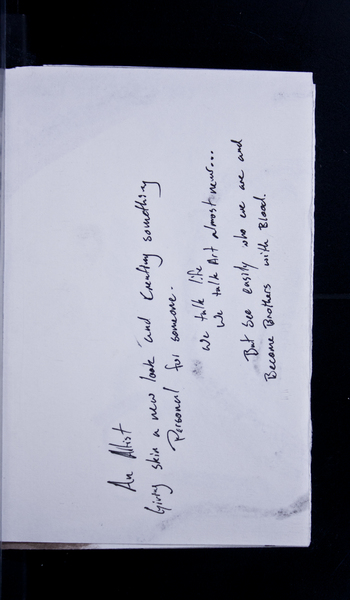 An Artist
Giving skin a new look and Creating something
Personal for someone.
We talk life
We talk Art almost never...
But see easily who we are and
Become Brothers with Blood.